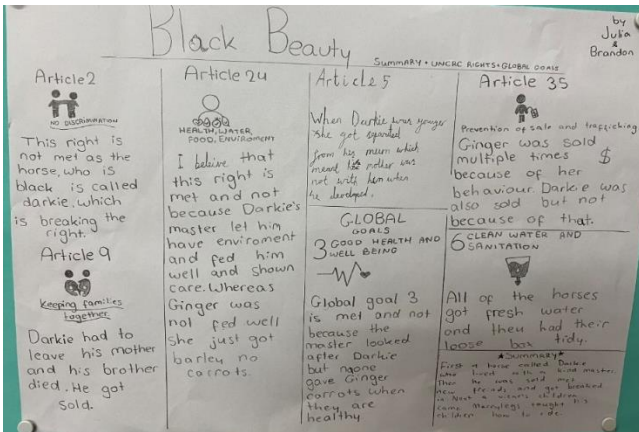 Black Beauty
by
Julia
&
Brandon
SUMMARY • UNCRC RIGHTS • GLOBAL GOALS
Article 2
NO DISCRIMINATION
This right is
not met as the
horse, who is
black is called
darkie. which
is breaking the
right.
Article 9
Keeping families
together
Darkie had to
leave his mother
and his brother
died. He got
sold.
Article 24
HEALTH, WATER,
FOOD, ENVIROMENT
I beleive that
this right is
met and not
because Darkie's
master let him
have enviroment
and fed him
well and shown
care. Whereas
Ginger was
not fed well
she just got
barley no
carrots.
Article 5
When Darkie was younger
she got
from his mum which
meant the mother was
not with him when
he developed.
GLOBAL
GOALS
3 GOOD HEALTH AND
WELL BEING
Global goal 3
is met and not
because the
master looked
after Darkie
but noone
gave Ginger
carrots when
they are
healthy
Article 35
Prevention of sale and trafficking
Ginger was sold
multiple times $
because of her
behaviour. Darkie was
also sold but not
because of that.
6 CLEAN WATER AND
SANITATION
All of the horses
got fresh water
and they had their
loose box tidy.
★Summary★
First a horse called Darkie
who lived with a kind master.
Then he was sold
new friends and got
children
came Merrylegs taught his
children how to ride.